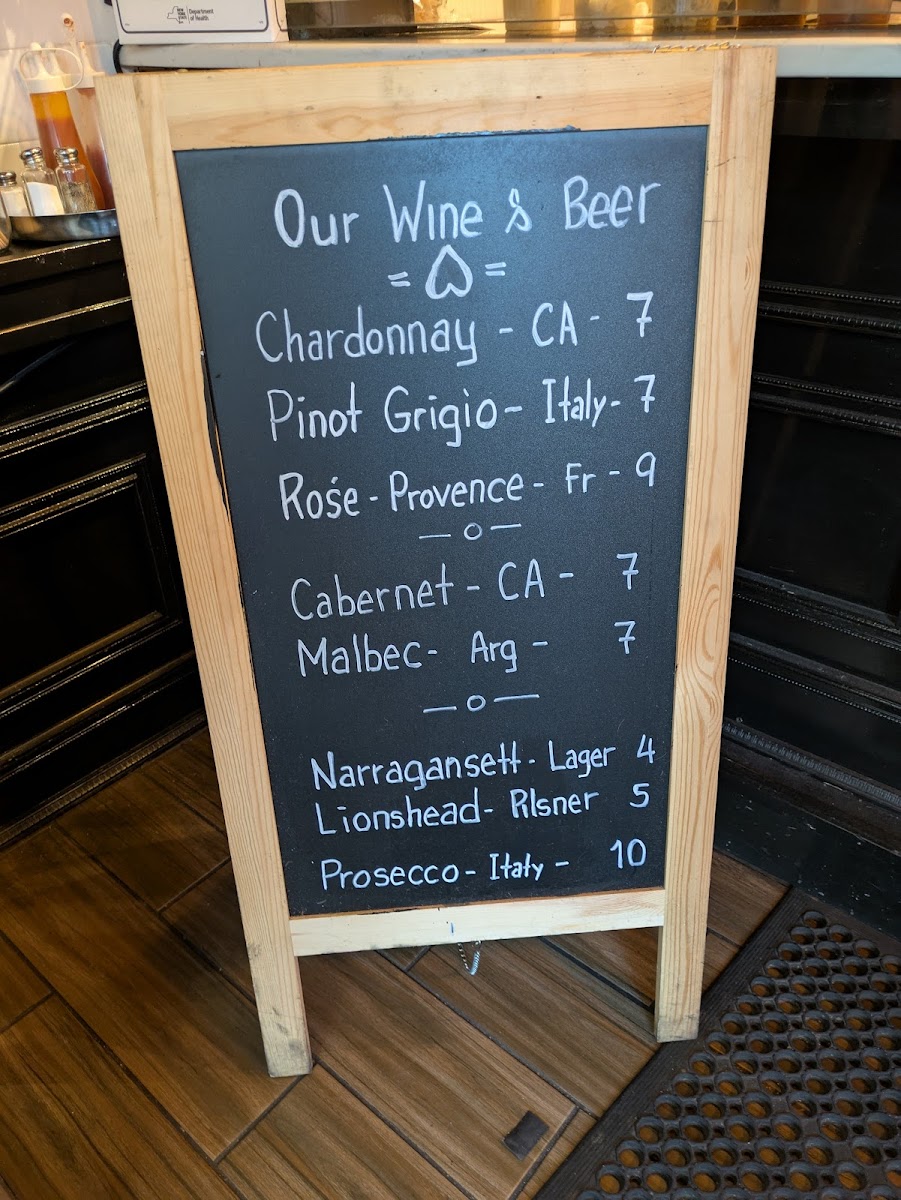 Department
of Health
Our Wine & Beer
Chardonnay - CA - 7
Pinot Grigio - Italy - 7
Rośe - Provence - Fr - 9
Cabernet - CA - 7
Malbec - Arg - 7
Narragansett - Lager 4
Lionshead - Pilsner 5
Prosecco - Italy - 10